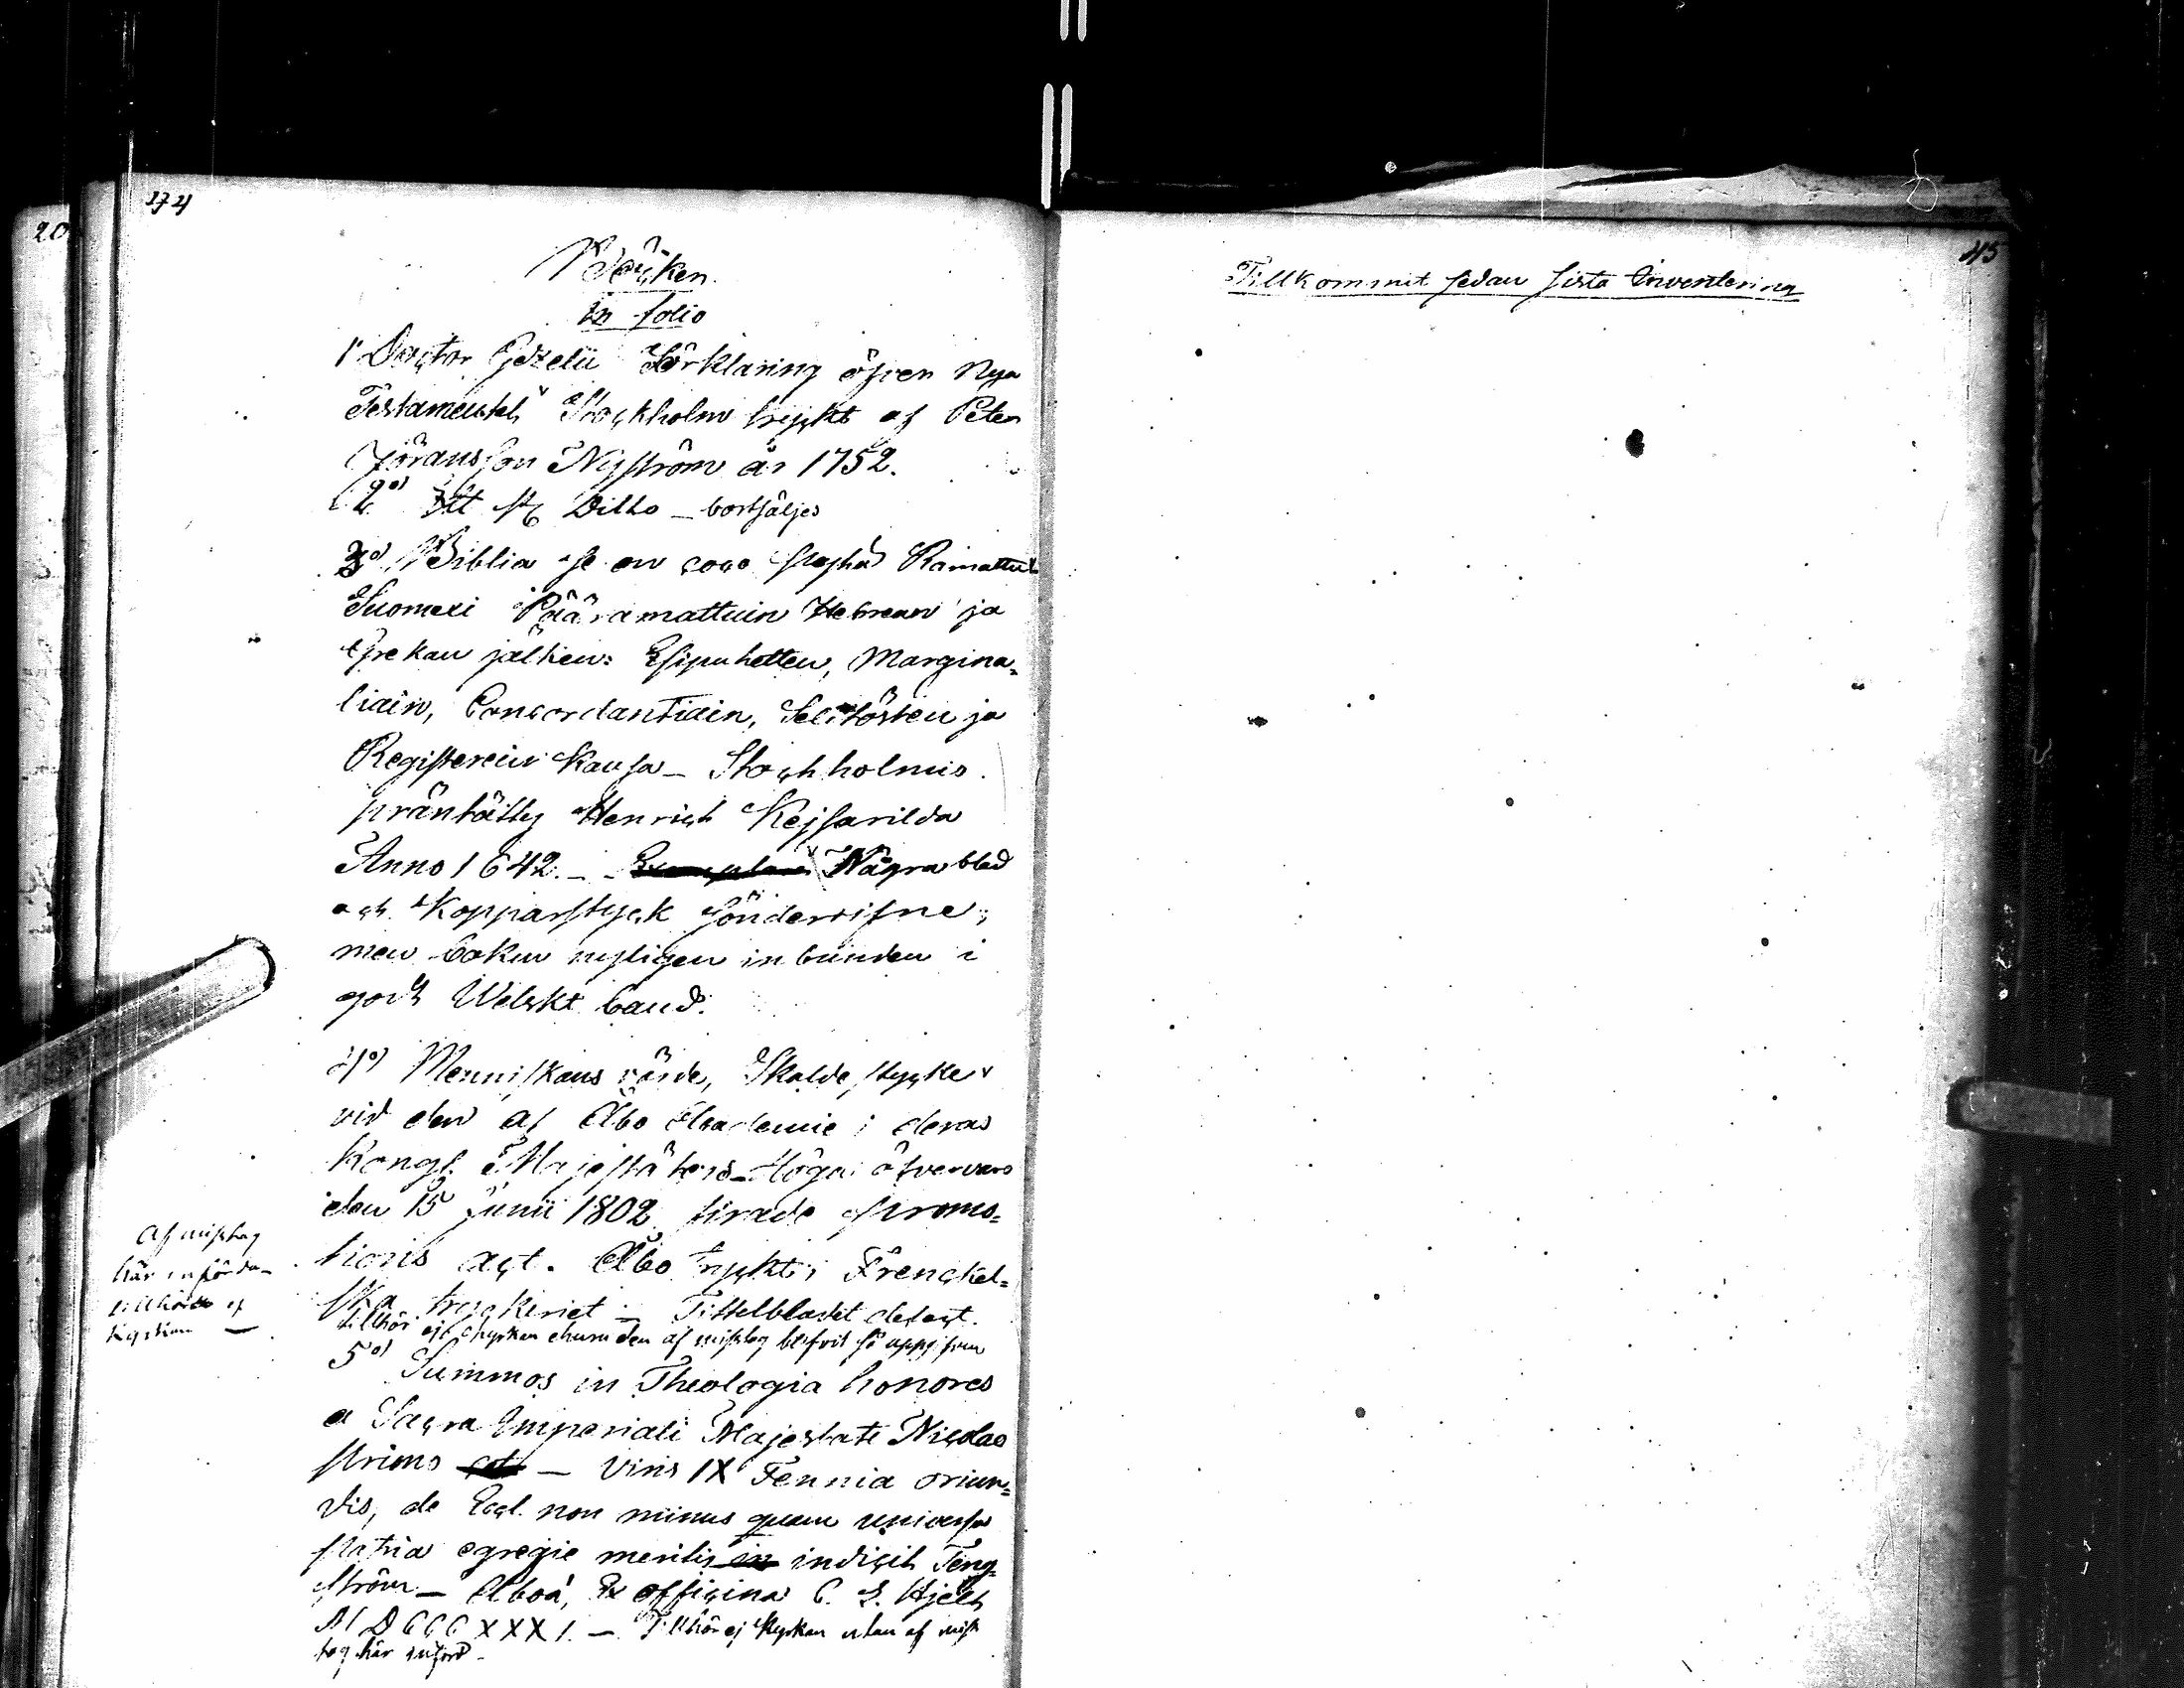 274
20
Böcker
in folio
1o Doctor Gezelii Förklaring öfver Nya
Testamentet Stockholm tryckt af Peter
Jöransson Nyström år 1752.
2o) Ett st Ditto _ bortsäljes
3o) Biblia Se on coco Pyhä Ramattu
Suomexi Pääramattuin Hebrean ja
Grekan jälken: Esipuhetten, Margina=
liain, Concordantiain, Selitösten ja
Registerein kansa _ Stockholmis
präntätty Henrich Kejsarilda
Anno 1642. _ Några blad
och Kopparstyck sönderrifne;
men boken nyligen inbunden i
godt Welskt band.
4o) Menniskans värde, Skaldestycke
vid den af Åbo Academie i deras
Kongl. Majestäters Höga öfvervaro
den 15 Junii 1802 firade Promo=
tions act. Åbo tryckt i Frenckel=
ska tryckeriet _ Tittelbladet defect.
tillhör ej Kyrkan ehuru den af misstag blifvit så
Af misstag
här införda
tillhörde ej
Kyrkan —
5o) Summos in Theologia honores
a Sacra Imperiali Majestate Nicolao
Primo — Viris IX Fennia oriun=
dis, de Eccl. non minus quam universa
Patria egregie meritis indicit Teng=
ström _ Aboæ, Ex officina C. L. Hjelt
MDCCCXXXI. — Tillhör ej Kyrkan utan af miss
tag här införd _
Tillkommit sedan sista Inventering
45